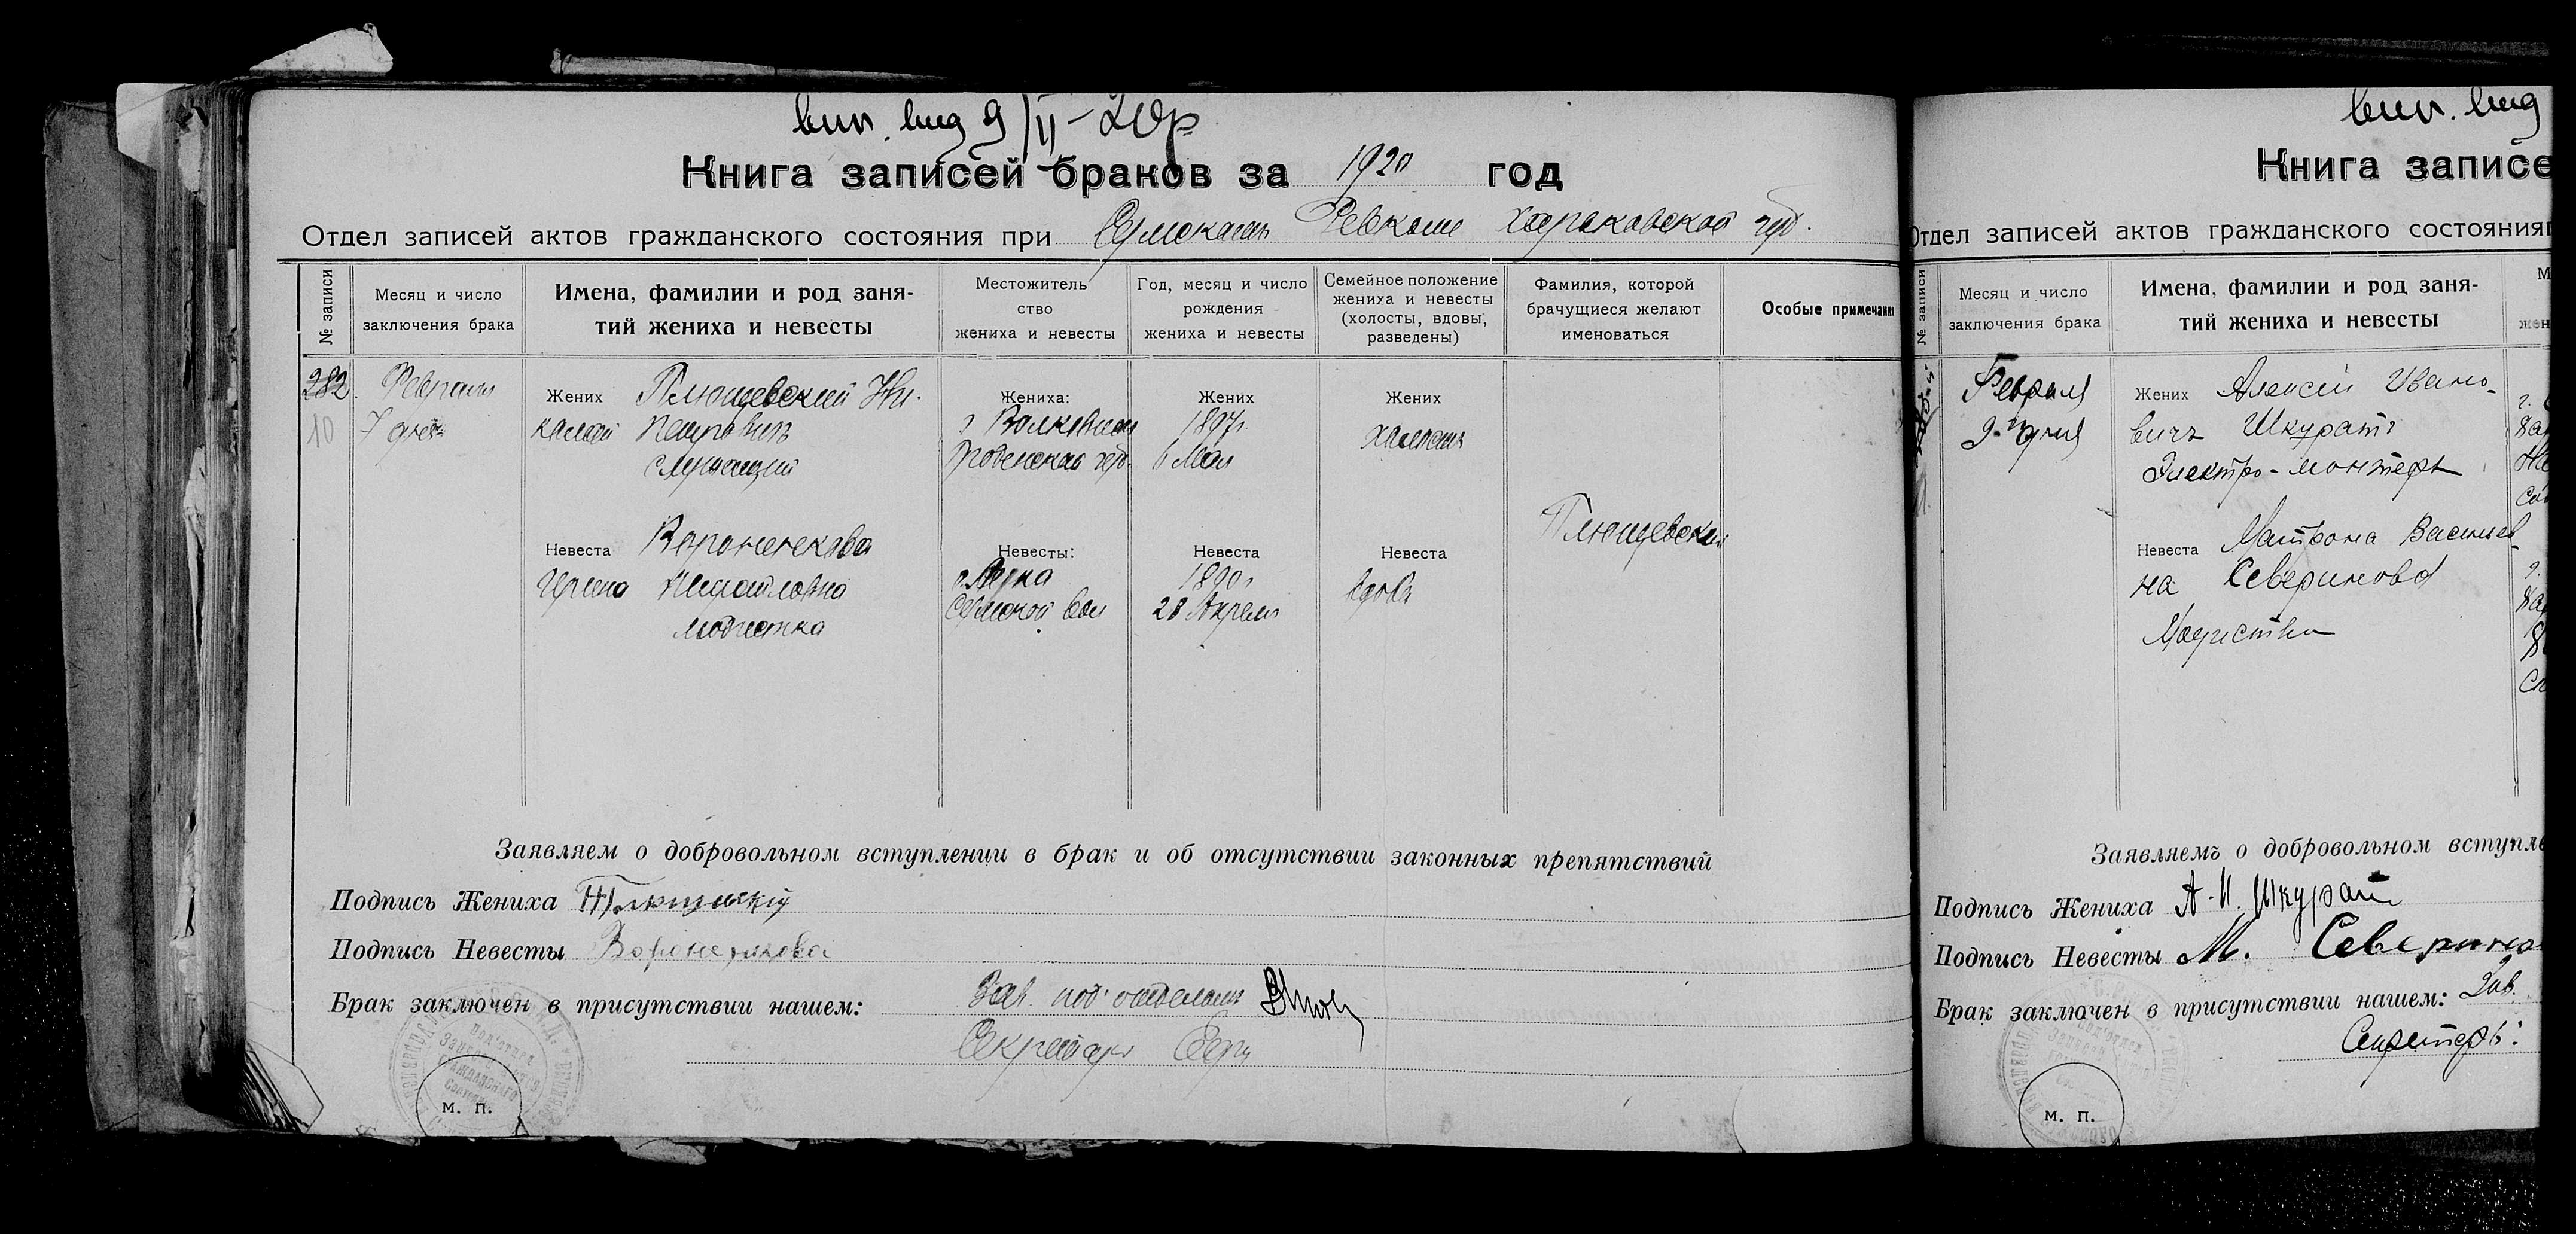 Книга записей браков за 1920 год
Отдел записей актов гражданского состояния при Сумском Ревкоме Харьковской губ.
№ записи
Месяц и число заключения брака
Имена, фамилии и род заня-
тий жениха и невесты
Местожитель
ство
жениха и невесты
Год, месяц и число
рождения
жениха и невесты
Семейное положение
жениха и невесты
(холосты, вдовы,
разведены)
Фамилия, которой
брачущиеся желают
именоваться
Особые примечания
282
10
Февраля
7 дня
Жених Плющевский Ни-
колай Петрович
служащий
Жениха:
г Волковыск
Гродненской губ.
Жених
1897г.
6 Мая
Жених
холост
Невеста
Ирина Михайловна
модистка
Невесты:
Сумской вол
Невеста
1890г
28 Апреля
Невеста
вдова
Плющевский
Заявляем о добровольном вступлении в брак и об отсутствии законных препятствий
Подпись Жениха
Подпись Невесты
Брак заключен в присутствии нашем: Зав. под. отделом
Секретарь
м. п.
Книга записе
Отдел записей актов гражданского состояния
№ записи
Месяц и число
заключения брака
Имена, фамилии и род заня-
тий жениха и невесты
Февраля
9-го дня
Жених Алексей Ивано-
вичъ Шкуратъ
Электро-монтеръ
Невеста Матрона Васильев-
на Северинова
Модистка
Заявляемъ о добровольном вступле
Подпись Жениха А. И. Шкурат
Подпись Невесты М. Северинова
Брак заключен в присутствии нашем: Зав.
Секретарь:
м. п.